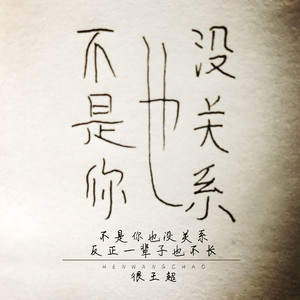 不是你
也
没关系
不是你也没关系
反正一辈子也不长
HENWANGCHAO
很王超